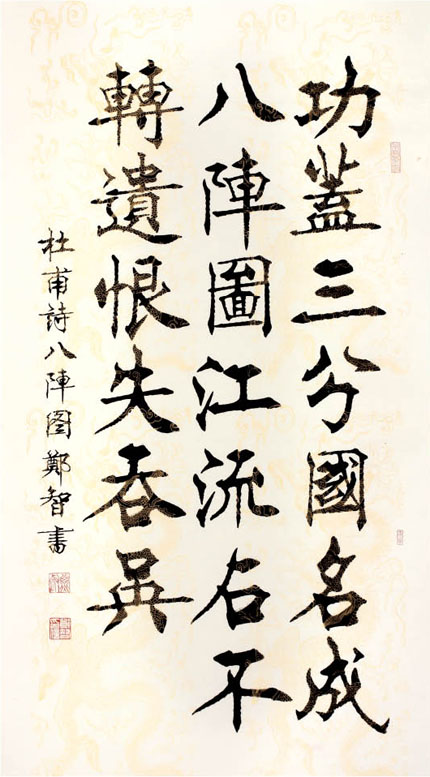 功蓋三分國名成
八陣圖江流石不
轉遺恨失吞吳
杜甫詩八陣图鄭智書